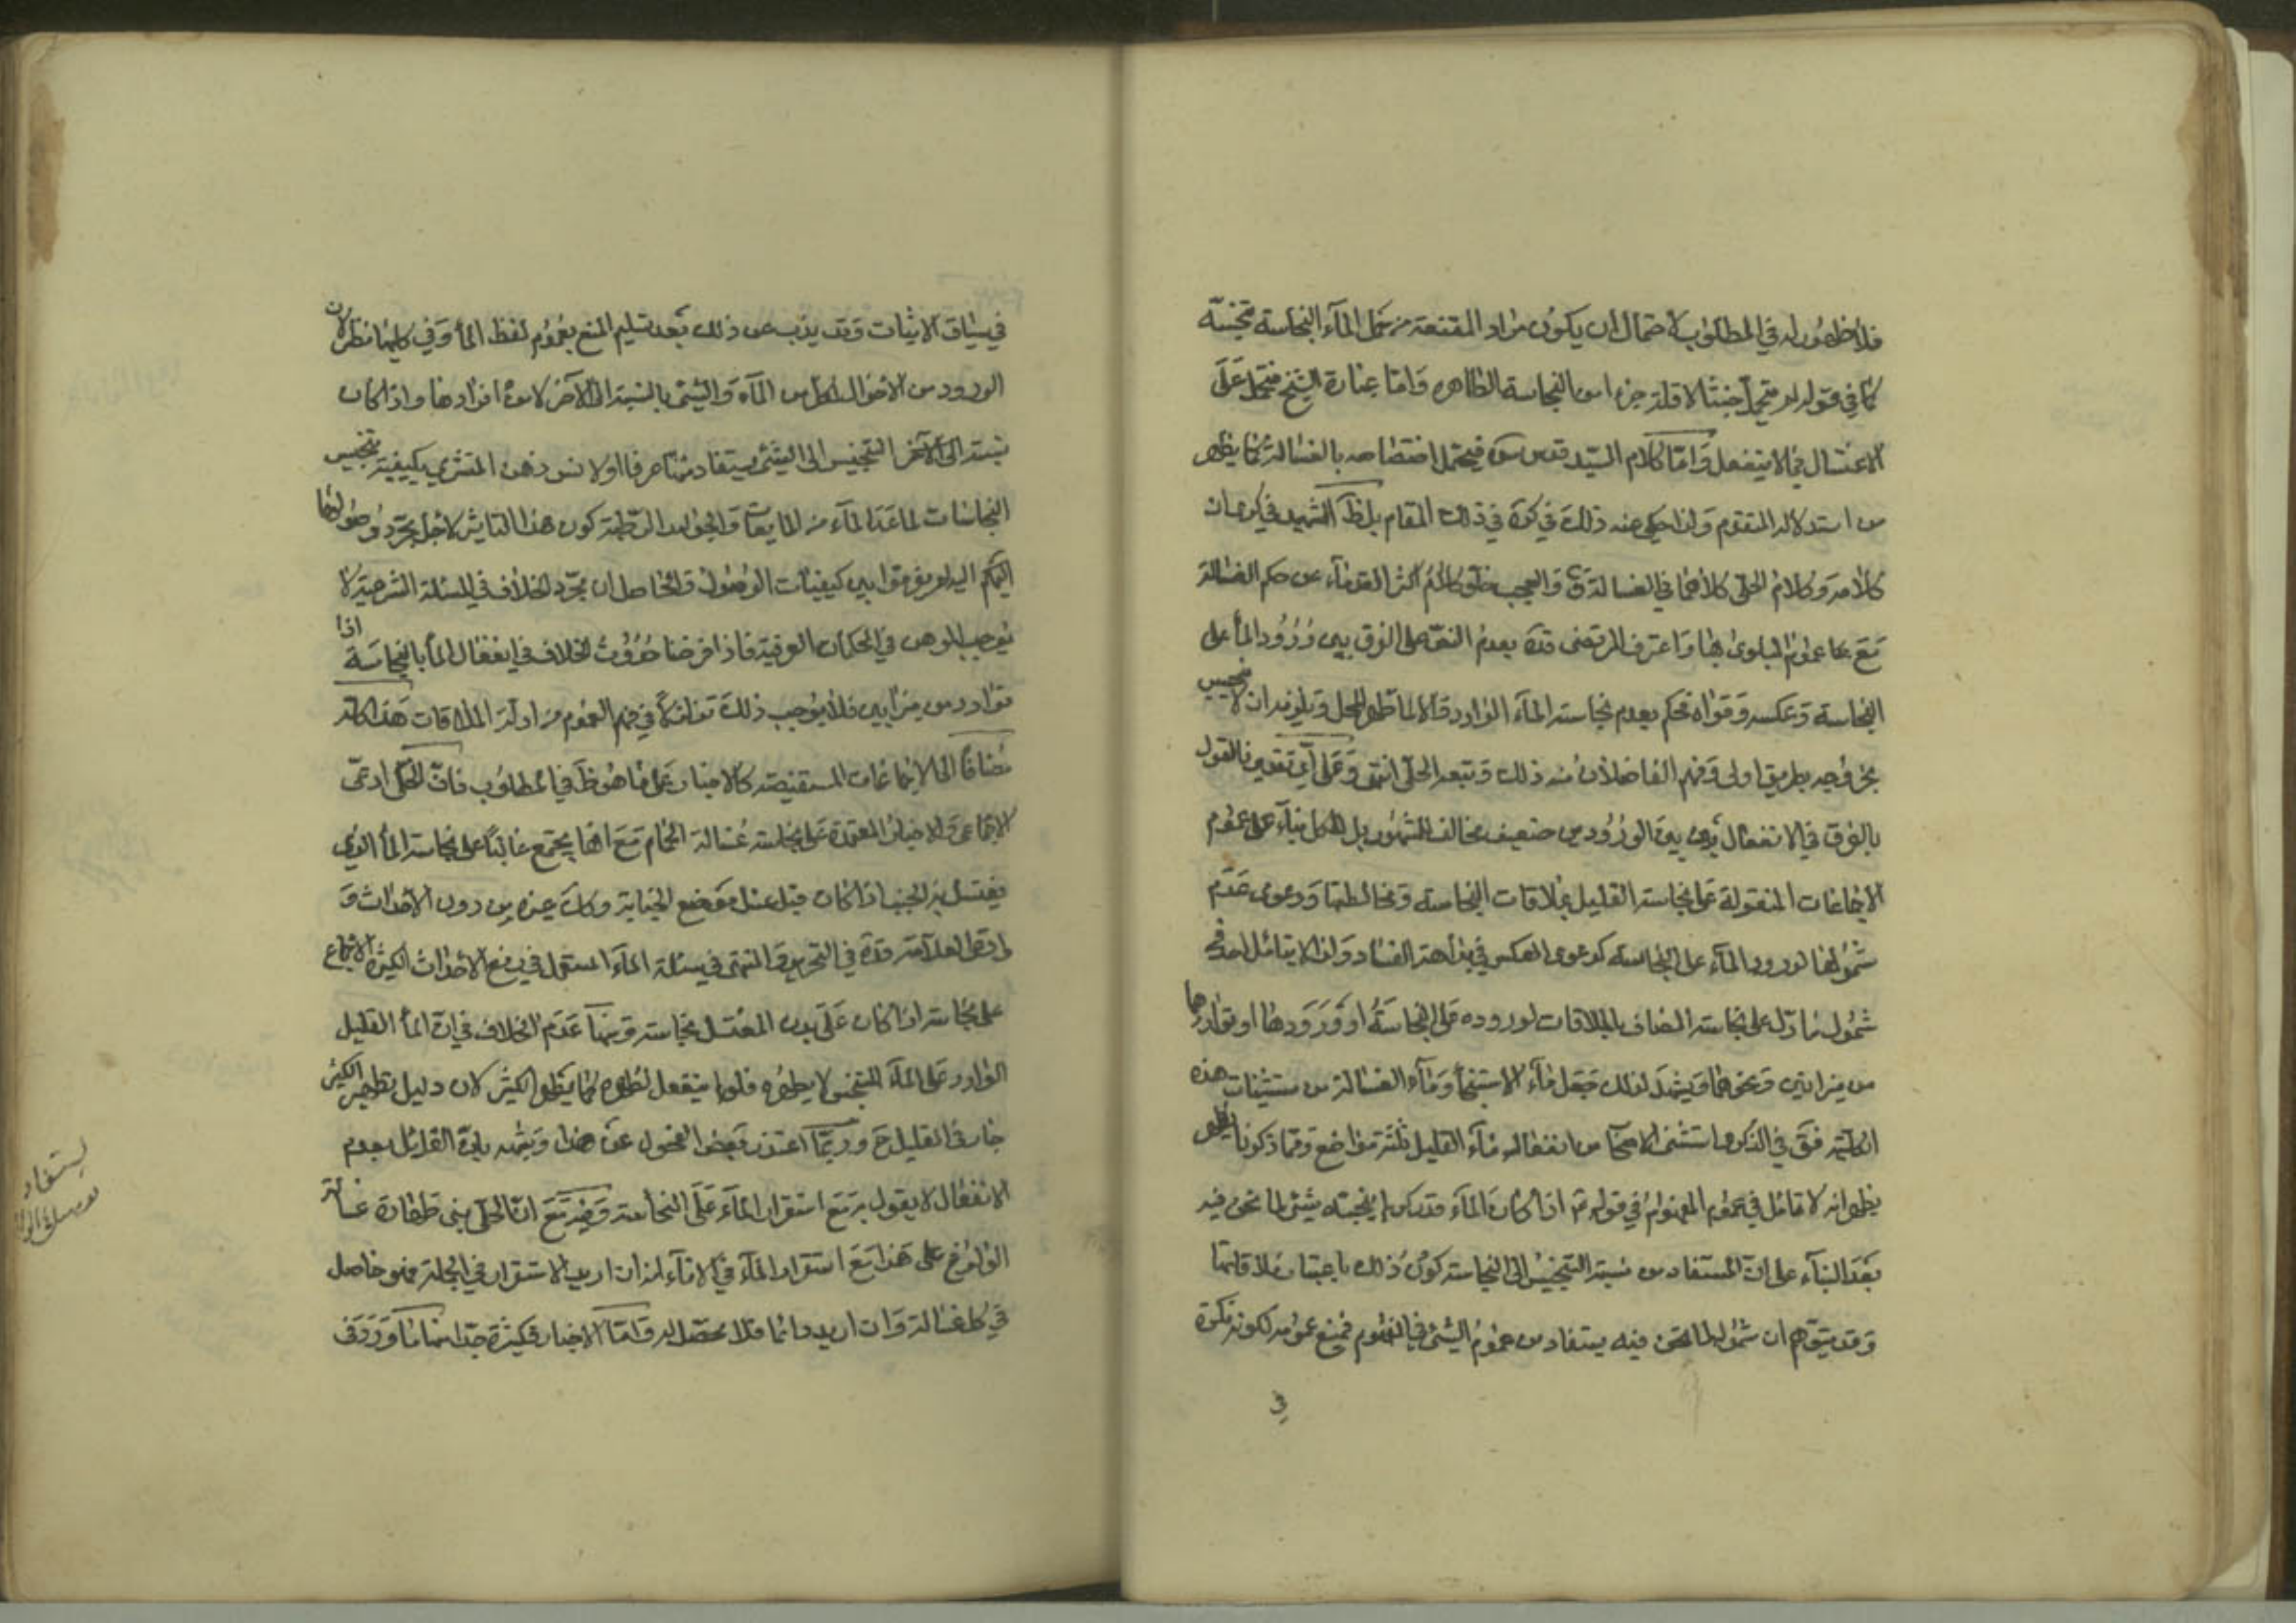 فلا ظهور له في المطلوب لاحتمال ان يكون مراد المقنعة من تحمل الماء النجاسة تنجسه
كما في قوله لم يتحمل خبثا لا قلة جزء من النجاسة الظاهرة وَامّا عبارة الشيخ فتحمل عَلَى
الاغتسال فيما لا ينفعل وَامّا كلام السّيد قدس سره فيحتمل اختصاصه بالغسالة كما يظهر
من استدلاله المتقدم وَلذا حكى عنه ذلكَ في كره في ذلك المقام بل ظَ الشهيد في كرى ان
كلامه وَكلام الحلي كلاهما في الغسالة وَالعجب خلو كلام اكثر القدماء عن حكم الغسالة
مَعَ عموم البلوى بها وَاعترف المرتضى قده بعدم النص على الفرق بين وُرُود الماء على
النجاسة وَعكسه وَقواه فحكم بعدم نجاسة الماء الوارد وَالا لما طهر المحل وَيلزمه ان لا ينجس
بخروجه بطريق اولى وَفهم الفاضلان منه ذلك وَتبعه الحلي انتهى وَعَلى اَيّ تقدير فالقول
بالفرق في الانفعال بين الورُودين ضعيف مخالف للمشهُور بل للكل بناءً على عموم
الاجماعات المنقولة عَلى نجاسة القليل بملاقات النجاسة وَمخالطتها وَدعوى عَدَم
شمُولها لورود الماء على النجاسة كدعوى العكس في بداهة الفساد وَلذا لا يتامل احد في
شمُول ما دلّ على نجاسة المضاف بالملاقات لوروده عَلى النجاسَة او وُرَودها او تواردهما
من ميزابين وَنحوهما وَيشهَد لذلك جَعل مَاء الاستنجاء وَمَاء الغسالة من مستثنيات هذه
الكلية فعَن في الذكرى استثنى الاصحاب من انفعال ماء القليل ثلثة مواضع وَممّا ذكرنا يظهر
يظهر انه لا تامّل في عموم المفهوم في قوله ع اذا كانَ الماء قدر كر لم ينجسه شئ لما نحن فيه
بَعَد البناء على انّ المستفاد من نسبة التنجيس الى النجاسة كونُ ذلك باعتبار ملاقاتها
وَقد يتوهم ان شموُله لما نحن فيه يستفاد من عموم الشئ في المفهوم فيمنع عمومه لكونه نكرة
في
في سياق الاثبات وَقد يذب عن ذلك بَعد تسليم المنع بعمُوم لفظ الماء وَفي كليهما نظر لان
الورود من الاحوال لكل من الماء وَالشئ بالنسبة الى الآخر لا من افرادها واذا كان
نسبة التنجيس الى الشئ يستفاد منها عرفا اولا نس ذهن المتشرع بكيفية تنجيس
النجاسات لما عَدا الماء من المايعات وَالجوامد الرطبة كون هذا التاثير لاجل مجرّد وُصولها
اليكم اليه لم يفرقوا بين كيفيات الوصُول وَالحاصل ان مجرّد الخلاف في المسئلة الشرعية لا
يوجب الوهن في الحكمان العرفية فاذا فرضنا حدُوث الخلاف في انفعال الماء بالنجاسَة اذا
توارد من ميزابين فلا يوجب ذلكَ تزلزلاً في فهم العموم من ادلّة الملاقات هَذا كله
مُضافاً الى الاجماعات المستفيضة كالاخبار عَلى ما هُو ظَ في المطلوُب فانّ الحلّي ادعى
الاجماع وَالاخبار المعتمدة عَلى نجاسة غُسالة الحمام مَعَ انها يجتمع غالبًا على نجاسة الماء الذي
يغتسل به الجنب اذا كان قبل غسل مَوضع الجنابة وكانَ غيره من دون الاحداث وَ
ادعى العلامة قدّه في التحرير وَالمنتهى في مسئلة الماء المستعمل في رفع الاحداث الكبيرة الاجماع
على نجاسته اذا كان عَلَى بدن المغتسل نجاسة وَمنها عَدَم الخلاف في ان الماء القليل
الوارد عَلى الماء المتنجس لا يطهره فلولا ينفعل لطهره كما يطهره الكثير لان دليل تطهير الكثير
جار في القليل ح وَربما اعتذر بَعض الفحول عن هذا وَشبهه بانّ القائل بعدم
الانفعال لا يقول به مَع استقرار الماء عَلَى النجاسة وَفيه مَعَ انّ الحلّي بنى طهارة غسالة
الولوُغ على هذا مَعَ استقرار الماء في الاناء انه ان اريد الاستقرار في الجملة فهو حاصل
في كل غسالة وَان اريد دائما فلا محصّل له وَامّا الاخبار فكثيرة جدّا منها ما وَرَدَ في
يستفاد